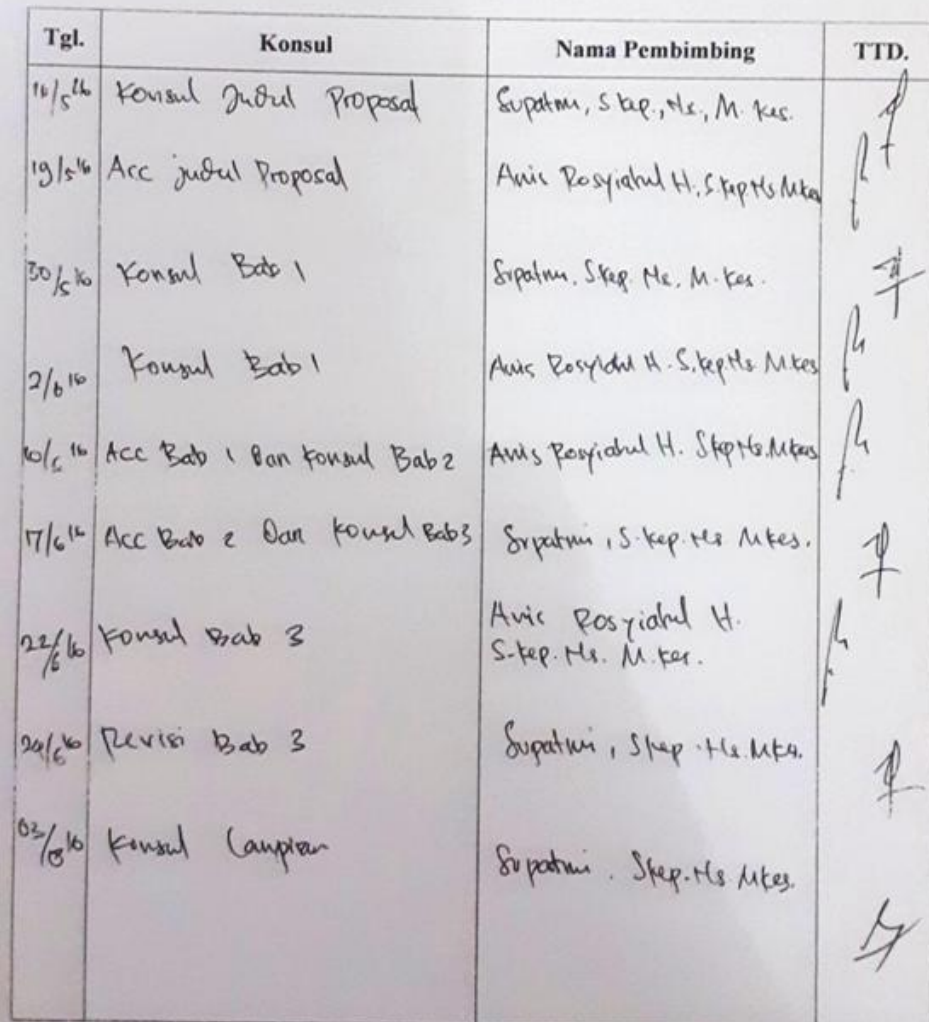 Tgl. Konsul Nama Pembimbing TTD.
16/5 16 Konsul Judul Proposal Supatmi, S kep., Ns., M. Kes.
19/5 16 Acc judul Proposal Anis Rosyiatul H. S.kep Ns M.kes
30/5 16 Konsul Bab 1 Supatmi. S.kep. Ns. M. Kes.
2/6 16 Konsul Bab 1 Anis Rosyiatul H. S.kep Ns M.kes
Acc Bab 1 Dan Konsul Bab 2 Anis Rosyiatul H. Skep Ns. M.kes
17/6 16 Acc Bab 2 Dan Konsul Bab3 Supatmi, S.kep. Ns Mkes.
Anis Rosyiatul H.
22/6 16 Konsul Bab 3 S.kep. Ns. M.kes.
24/6 16 Revisi Bab 3 Supatmi, Skep. Ns. Mkes.
03/8 16 Konsul Lampiran Supatmi. Skep. Ns Mkes.